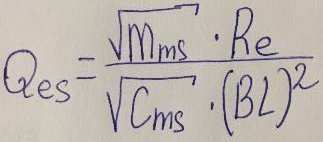 Qes = √Mms · Re / √Cms · (BL)²